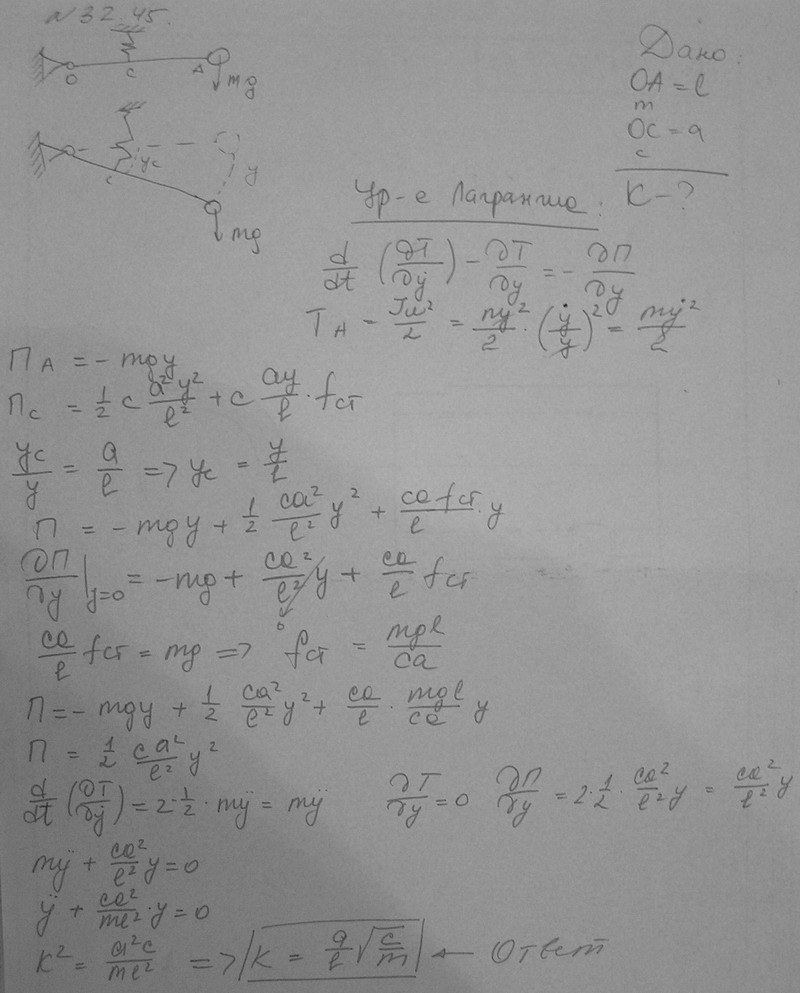 N 32.45.
O C A mg
yc y
C mg
Дано:
OA = l
m
OC = a
c
K - ?
Ур-е Лагранжа:
d/dt (∂T/∂ẏ) - ∂T/∂y = - ∂П/∂y
T_A = Jω²/2 = my²/2 · (ẏ/y)² = mẏ²/2
П_A = - mgy
П_C = 1/2 c a²y²/l² + c ay/l · fст
yc/y = a/l => yc = y/l
П = - mgy + 1/2 ca²/l² y² + ca fст/l y
∂П/∂y |y=0 = -mg + ca²/l² y + ca/l fст
0
ca/l fст = mg => fст = mgl/ca
П = - mgy + 1/2 ca²/l² y² + ca/l · mgl/ca y
П = 1/2 ca²/l² y²
d/dt (∂T/∂ẏ) = 2·1/2 · mÿ = mÿ ∂T/∂y = 0 ∂П/∂y = 2·1/2 · ca²/l² y = ca²/l² y
mÿ + ca²/l² y = 0
ÿ + ca²/ml² · y = 0
K² = a²c/ml² => K = a/l √c/m ← Ответ